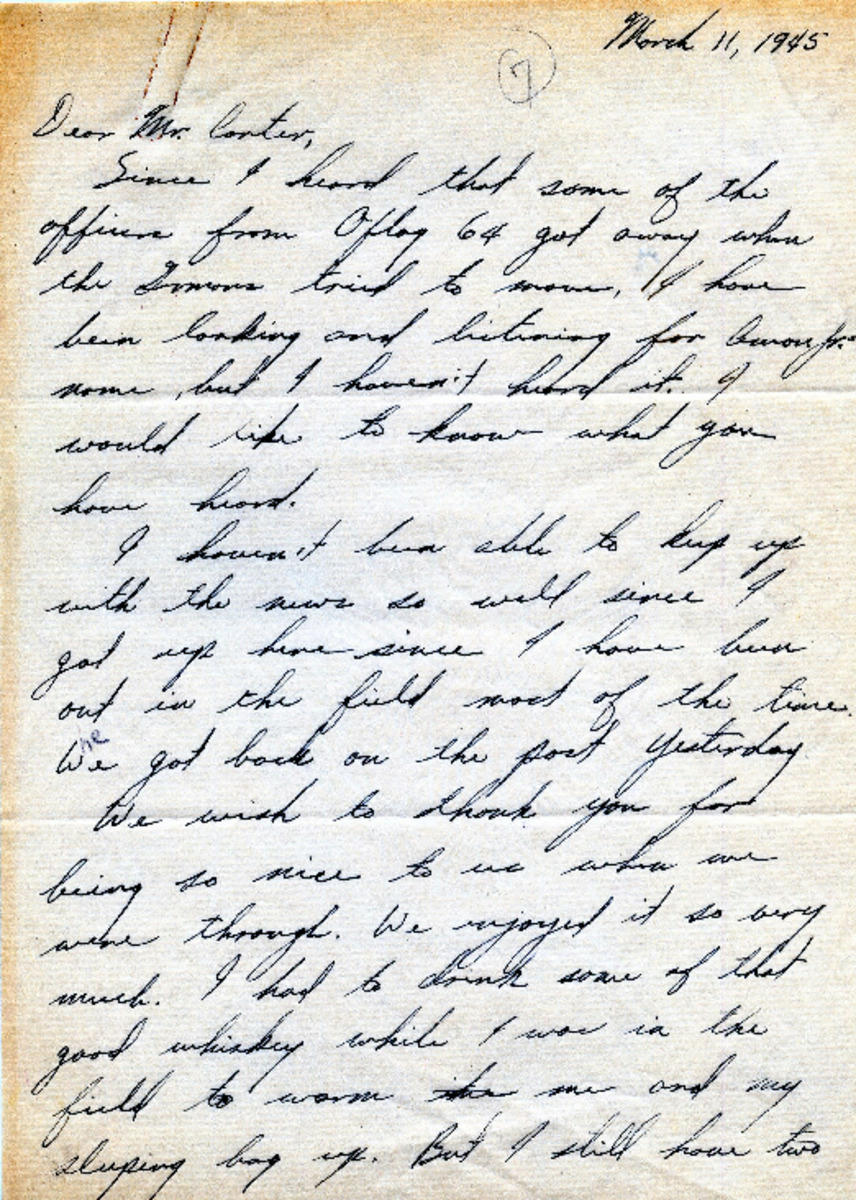 March 11, 1945
7
Dear Mr. Carter,
Since I heard that some of the
officers from Oflag 64 got away when
the Germans tried to move, I have
been looking and listening for Amon Jr.'s
name, but I haven't heard it. I
would like to know what you
have heard.
I haven't been able to keep up
with the news so well since I
got up here since I have been
out in the field most of the time.
We got back on the post yesterday.
We wish to thank you for
being so nice to us when we
were through. We enjoyed it so very
much. I had to drink some of that
good whiskey while I was in the
field to warm me and my
sleeping bag up. But I still have two